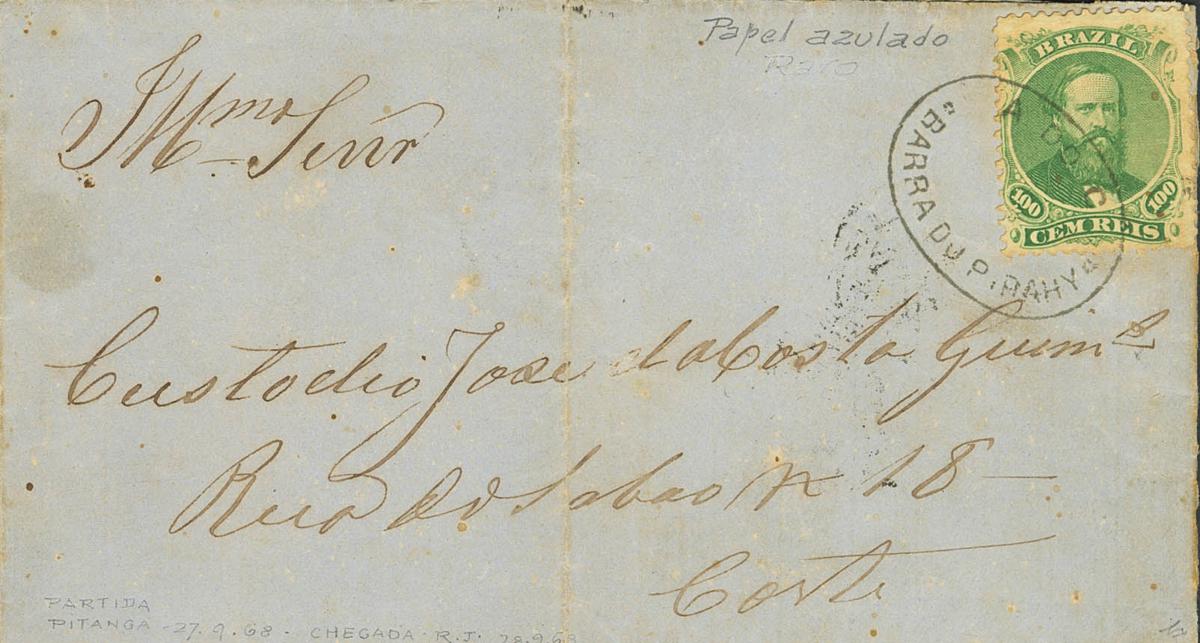 Papel azulado
Raro
BRAZIL
100 100
CEM REIS
"BARRA DO PIRAHY"
Illmo Senr
Custodio Jose da Costa Guimes
Rua do Sabao N 18
Corte
PARTIDA
PITANGA - 27.9.68 - CHEGADA - R.J. 28.9.68